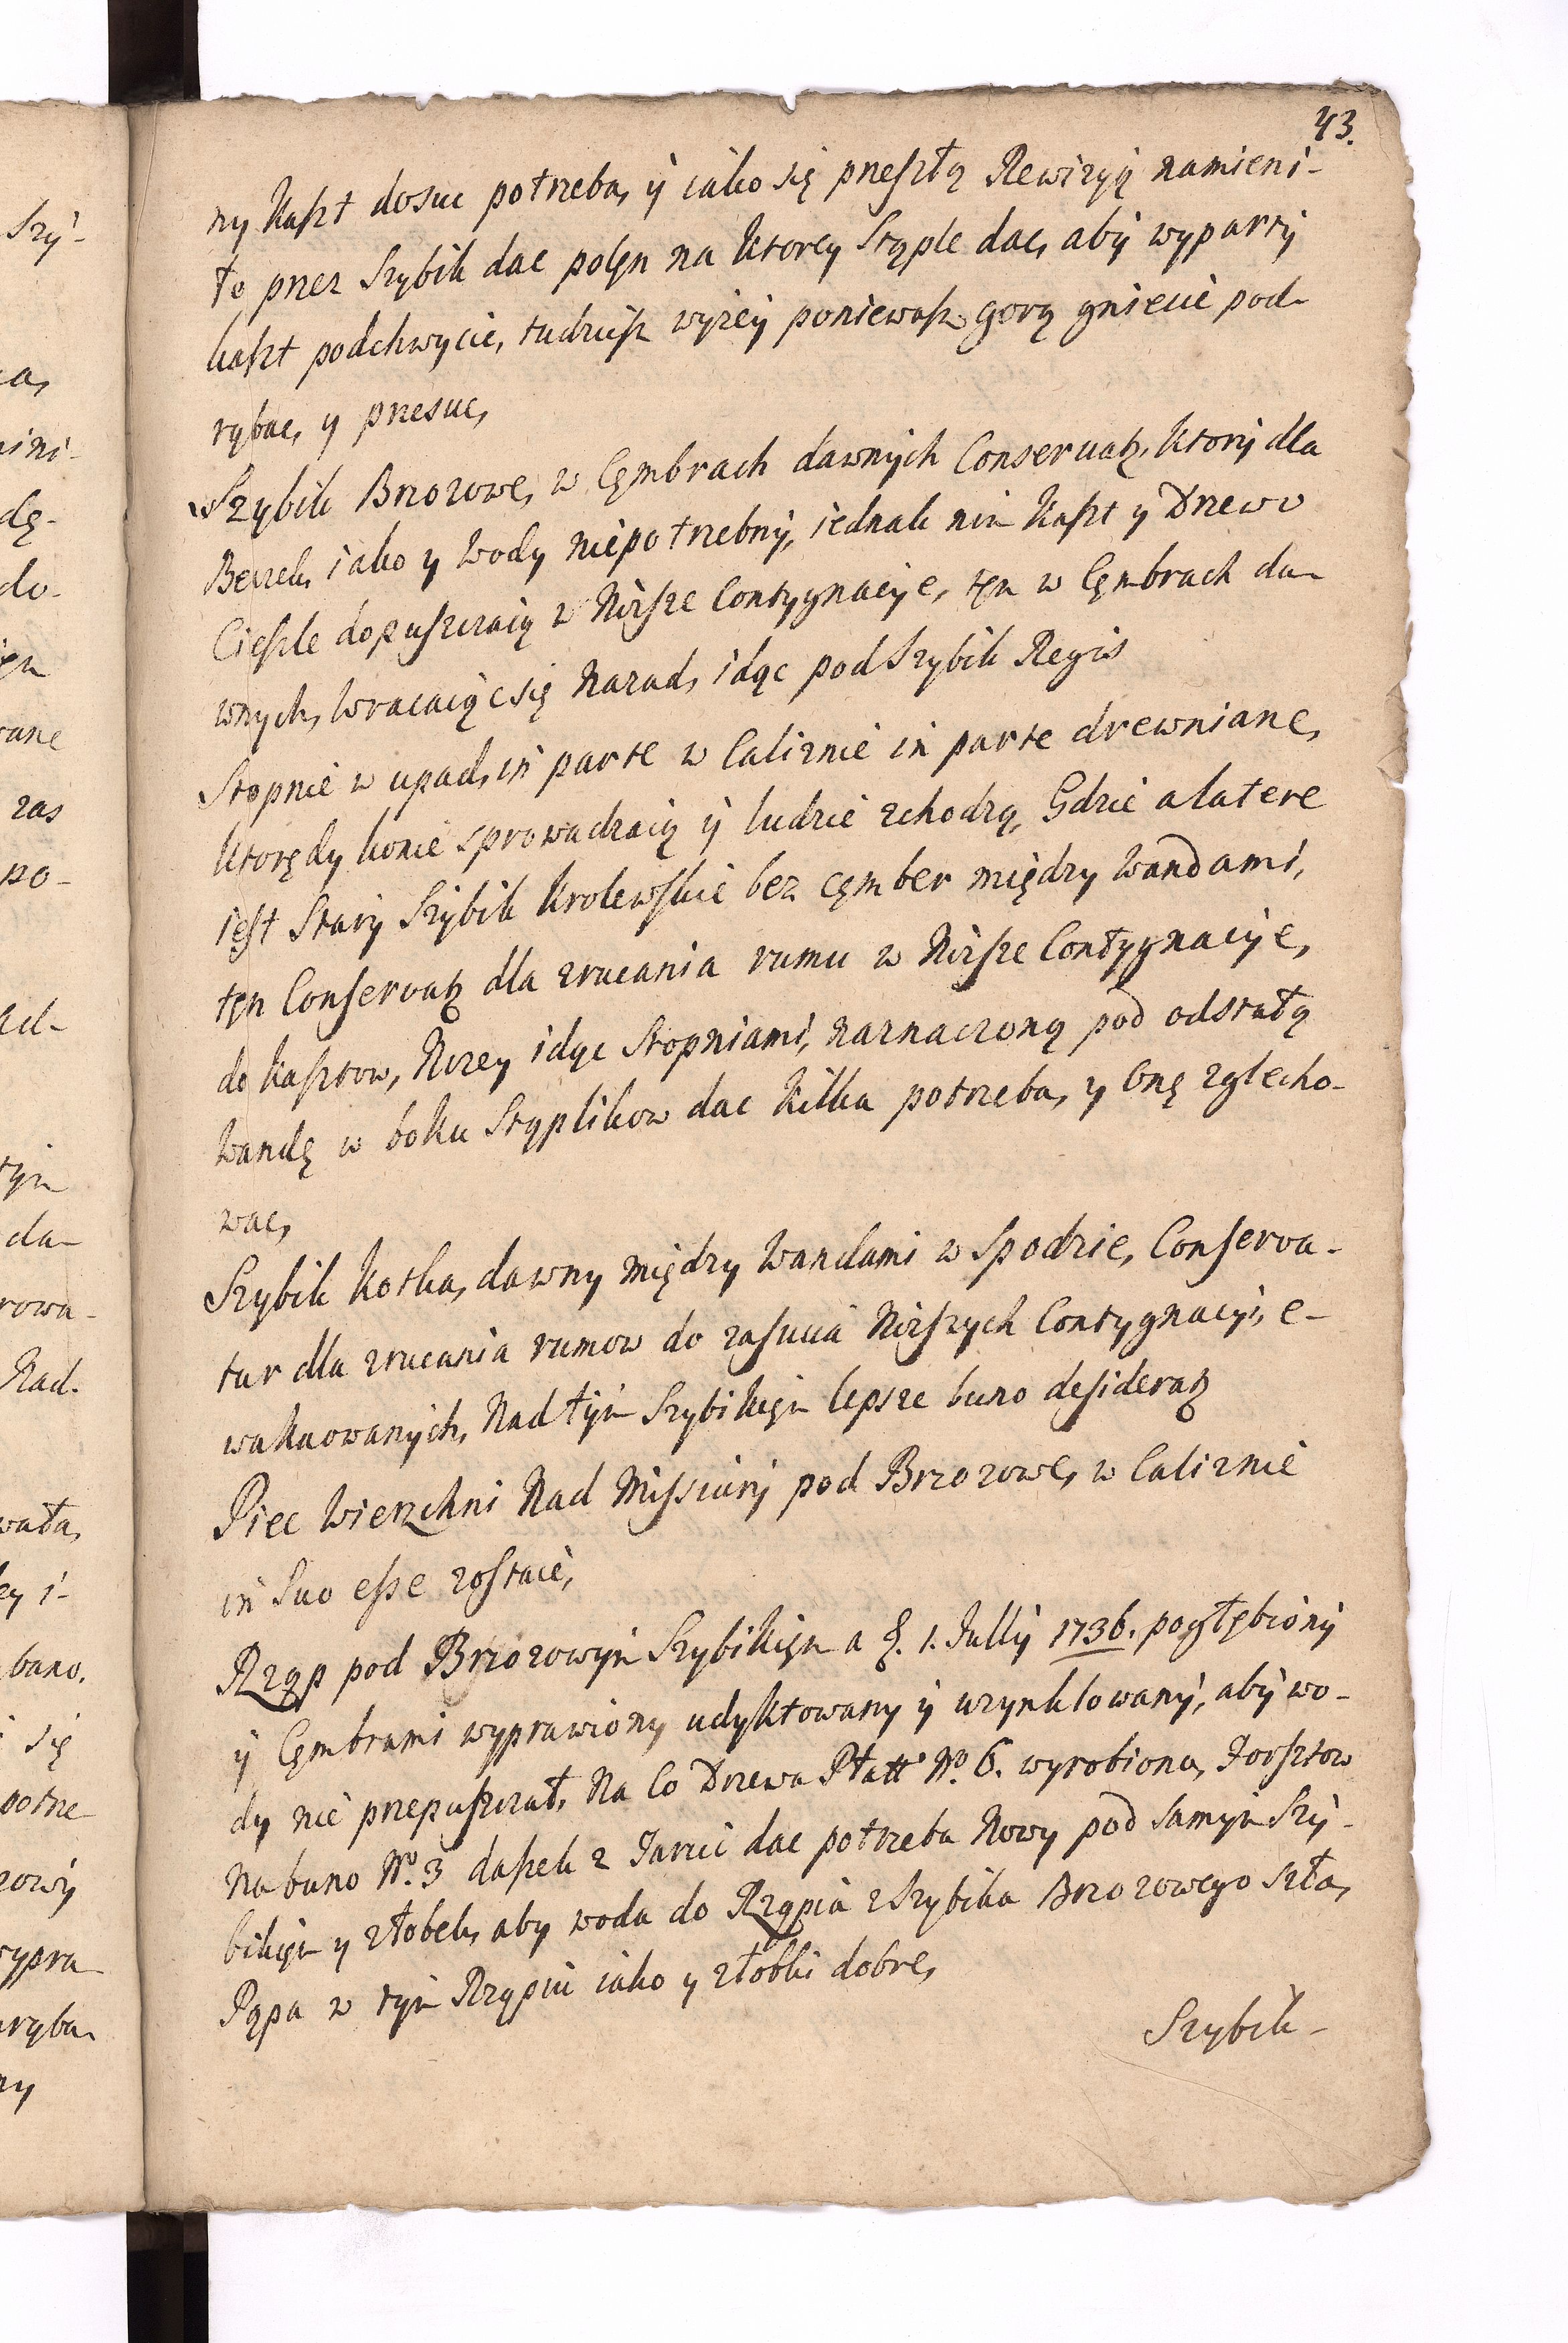 43.
ny Kaszt dosuc potrzeba, ÿ iako się przeszłą Rewizyą namieni-
ło przez Szybik dac polęn na ktorey Stęple dac, abÿ wyparty
kaszt podchwycic, tudziesz wyżey poniewasz gorą gniecie pod-
rębac, y przesuc,
Szybik Brzozowe, w Cęmbrach dawnÿch Conservatz, ktorÿ dla
Beczek, iako y Wody niepotrzebnÿ, iednak nim Kaszt y Drzewo
Cieszle dopuszczaią w Nizsze Contygnacÿe, tęn w Cęmbrach da-
wnych, Wracaiąc się Nazad, idąc pod Szybik Regis
Stopnie w upad, in parte w Caliznie in parte drewniane,
Ktorędy konie sprowadzaią ÿ ludzie zchodzą, Gdzie a latere
iest Starÿ Szÿbik krolewskie bez cęmber między Wandami,
tęn Conservatz dla zrucania rumu w Nizsze Contygnacÿe,
do Kasztow, Nizey idąc Stopniami, naznaczoną pod odstałą
Wandę w boku Stęplikow dac kilka potrzeba, y Onę zglecho-
wac,
Szybik kotka, dawny między Wandami w Spodzie, Conserva-
tur dla zrucania rumow do zasucia Nizszych Contygnacÿi, e-
wakuowanÿch, Nad tÿm Szybikięm lepsze buno desideratz
Piec Wierzchni Nad Missiurÿ pod Brzozowe, w Caliznie
in Suo esse zostaie,
Rząp pod Brzozowÿm Szybikięm a d. 1. Jullÿ 1736. pogłębionÿ
ÿ Cęmbrami wyprawiony udyktowany ÿ wrynklowanÿ, abÿ wo-
dy nie przepuszczał, Na Co Drzewa Płatt No. 6. wyrobiono, Forsztow
Na buno No. 3 daszek z Tarcic dac potrzeba Nowy pod Samÿm Szÿ-
bikięm y złobek, aby woda do Rząpia z Szybika Brzozowego szła,
Pąpa w tÿm Rząpiu iako y złobki dobre,
Szybik-